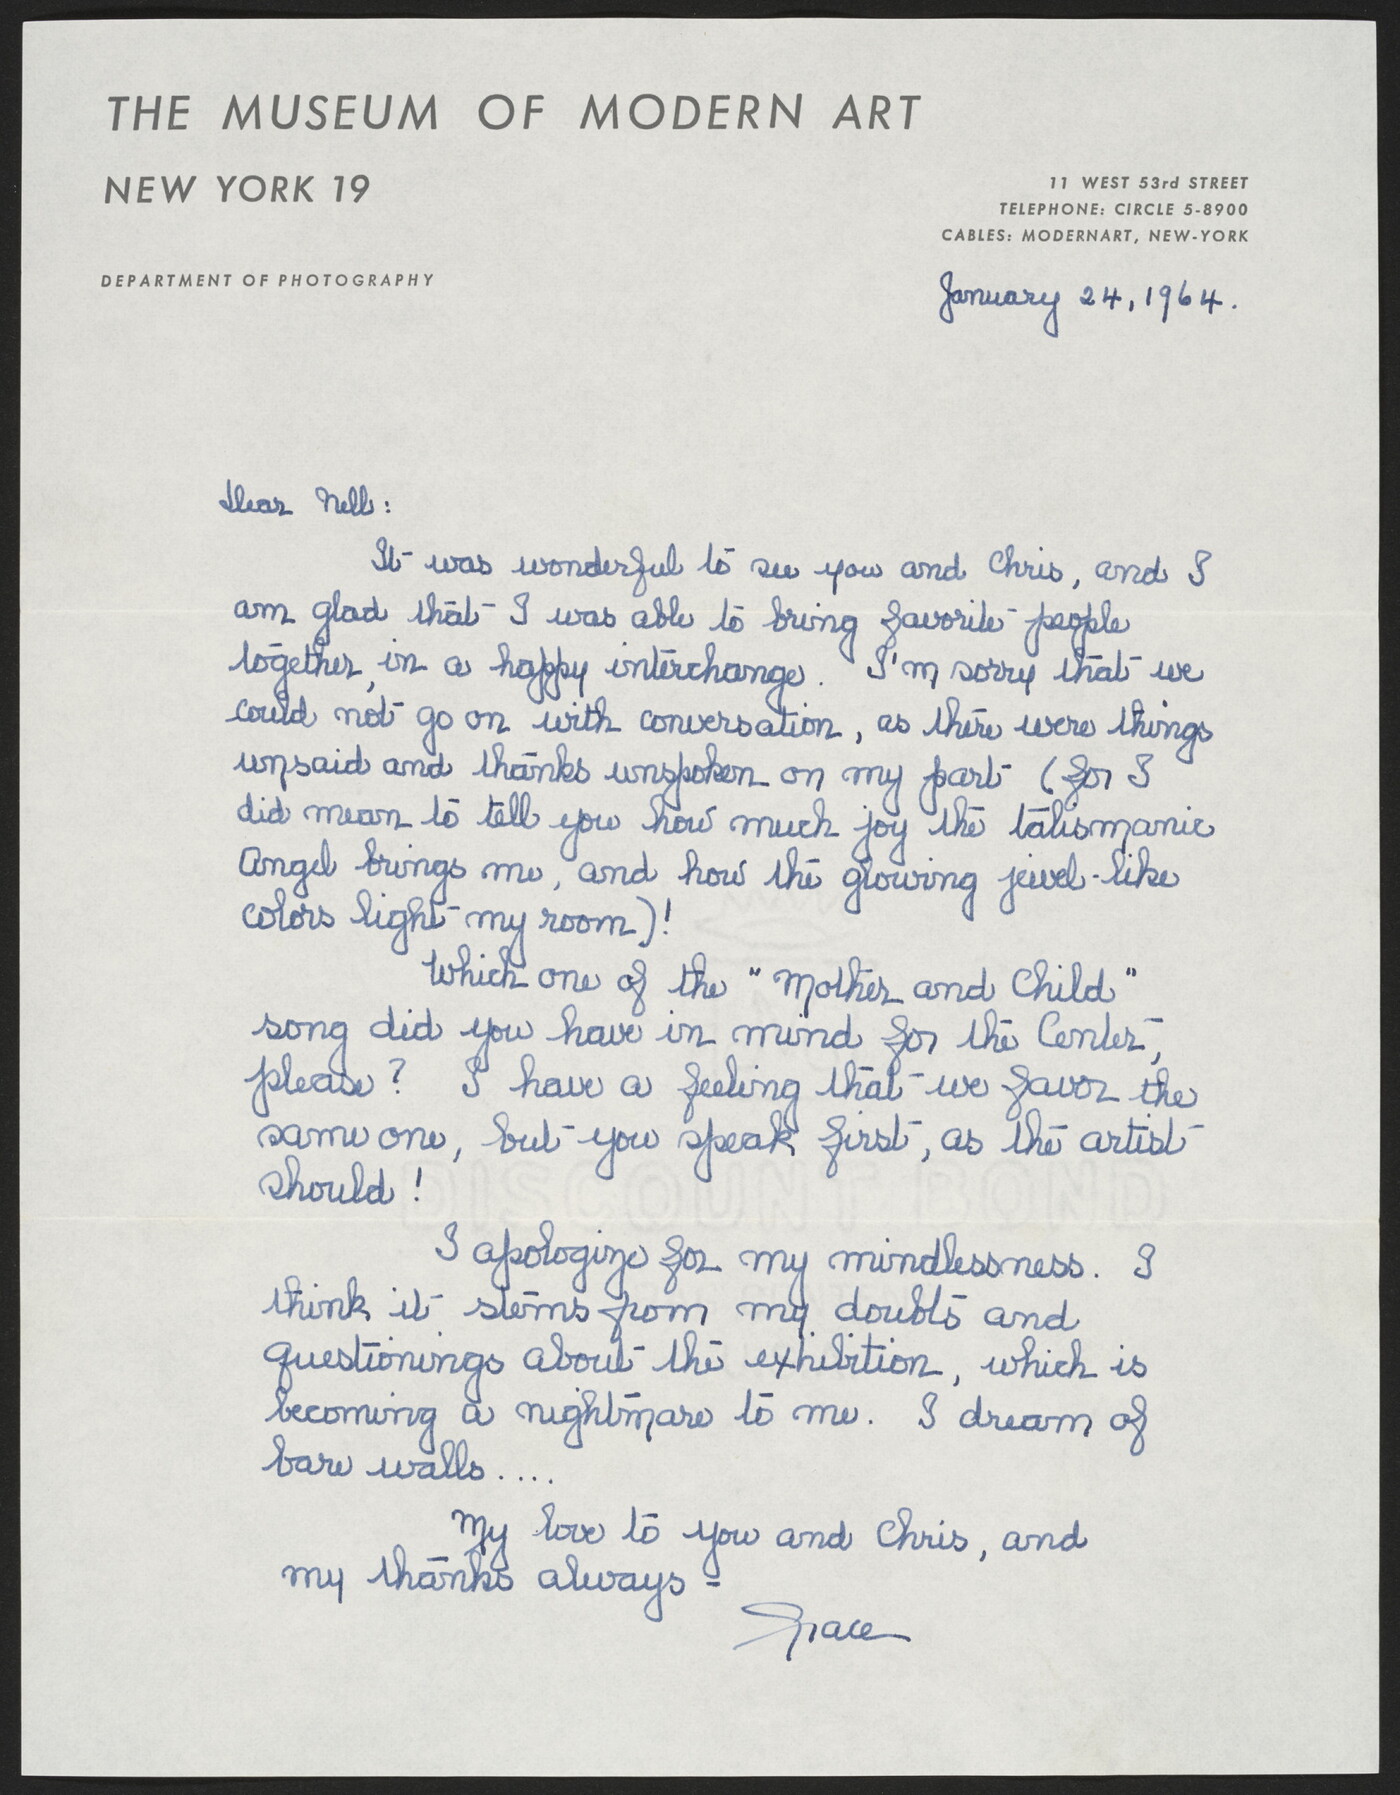 THE MUSEUM OF MODERN ART
NEW YORK 19
11 WEST 53rd STREET
TELEPHONE: CIRCLE 5-8900
CABLES: MODERNART, NEW-YORK
DEPARTMENT OF PHOTOGRAPHY
January 24, 1964.
Dear Nell:
It was wonderful to see you and Chris, and I
am glad that I was able to bring favorite people
together, in a happy interchange. I'm sorry that we
could not go on with conversation, as there were things
unsaid and thanks unspoken on my part (for I
did mean to tell you how much joy the talismanic
Angel brings me, and how the glowing jewel-like
colors light my room)!
Which one of the "Mother and Child"
song did you have in mind for the Center,
please? I have a feeling that we favor the
same one, but you speak first, as the artist
should!
I apologize for my mindlessness. I
think it stems from my doubts and
questionings about the exhibition, which is
becoming a nightmare to me. I dream of
bare walls....
My love to you and Chris, and
my thanks always -
Grace
DISCOUNT BOND